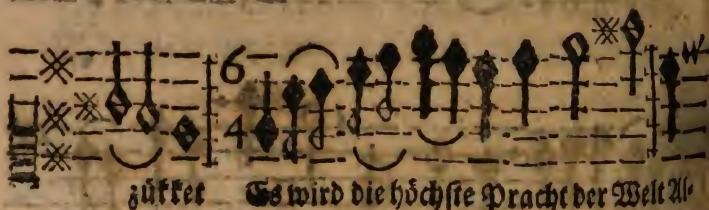 6
4
zükket Es wird die höchste Pracht der Welt Al-